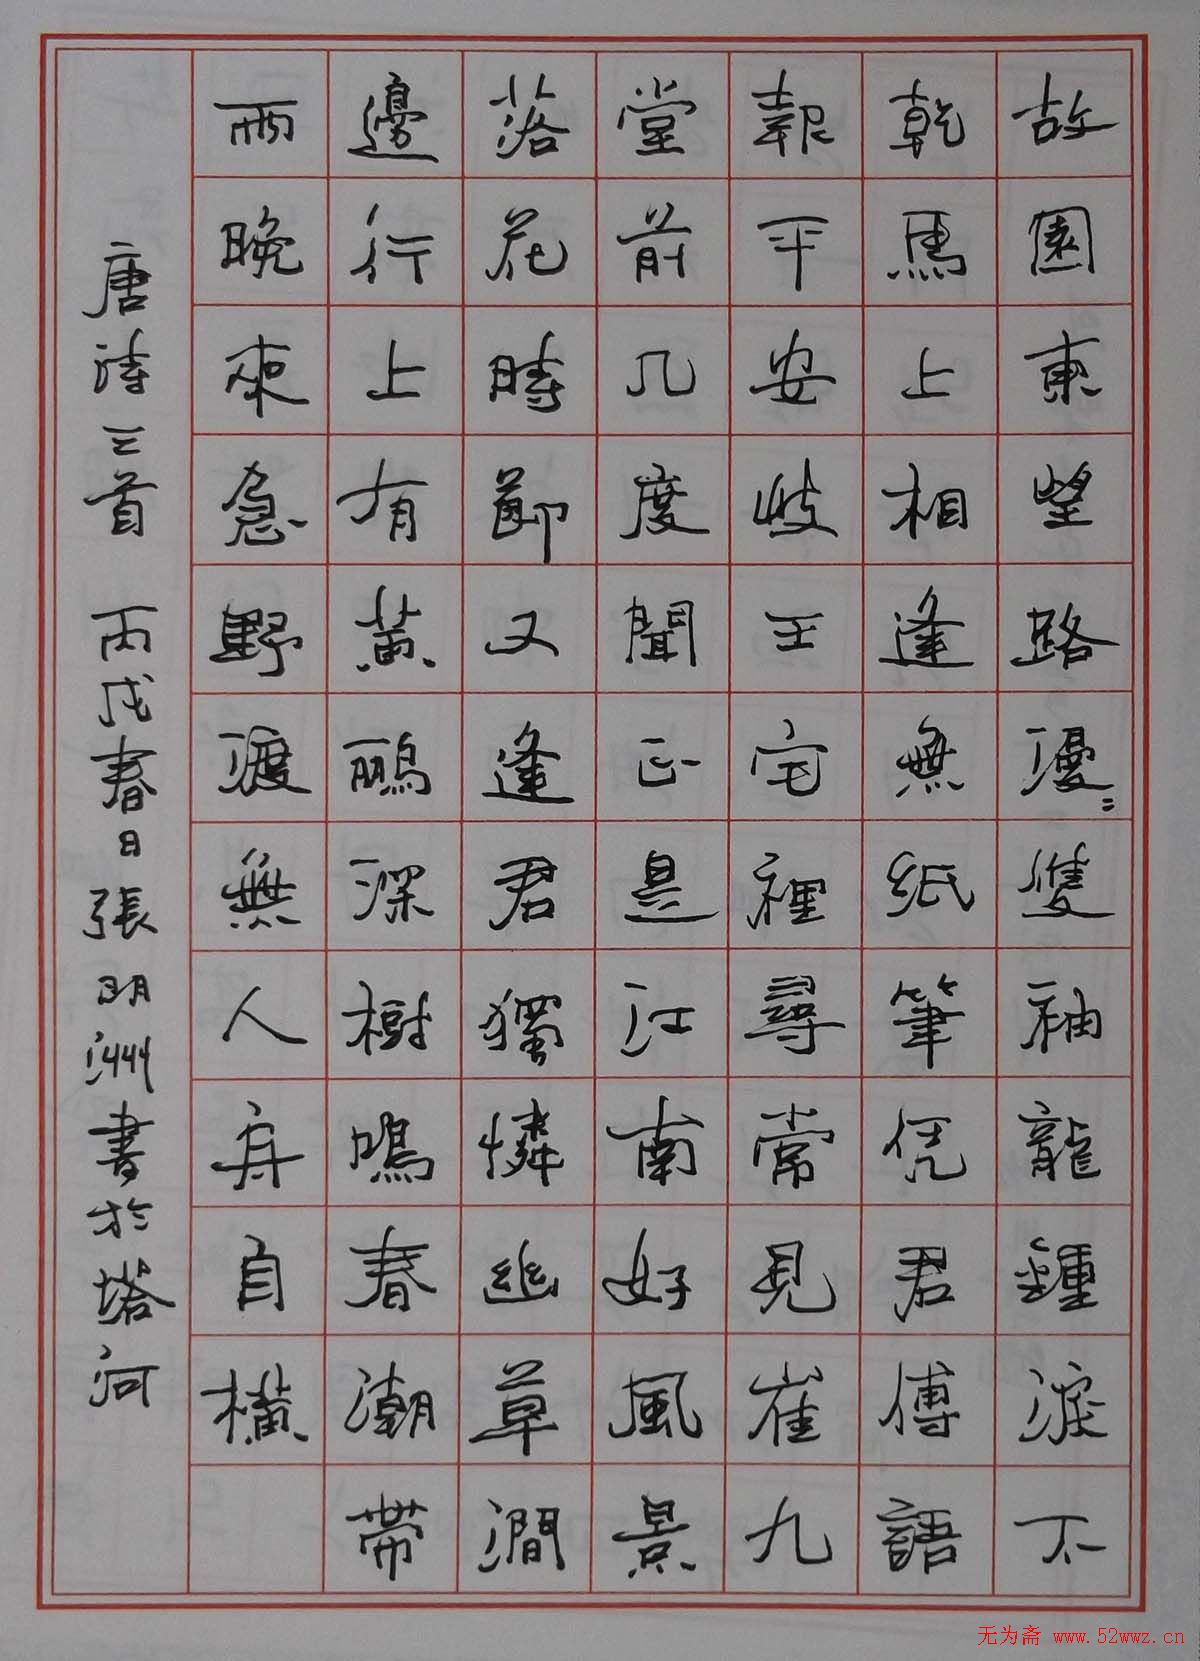 故園東望路漫〻雙袖龍鍾淚不
乾馬上相逢無紙筆凭君傳語
報平安岐王宅裡尋常見崔九
堂前几度聞正是江南好風景
落花時節又逢君獨憐幽草澗
邊行上有黃鸝深樹鳴春潮帶
雨晚來急野渡無人舟自橫
唐诗三首 丙戌春日張明洲書於塔河
无为斋 www.52wwz.cn